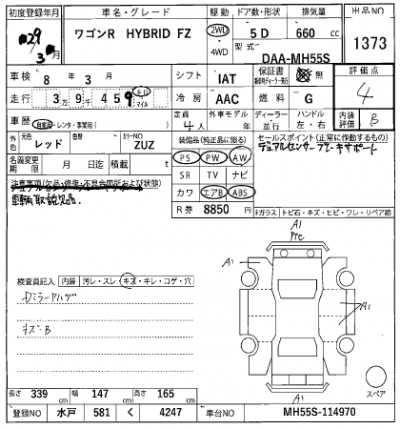 初度登録年月 車名・グレード 駆動 ドア数・形状 排気量 出品NO
29年 3月 ワゴンR HYBRID FZ 2WD 4WD 5D 660 cc 1373
型式 DAA-MH55S
車検 8年 3月 シフト IAT 保証書 無 評価点
走行 3万9千459 km マイル 冷房 AAC 燃料 G 4
自家用・レンタ・事業用 定員 4人 外車モデル 年 ディーラー・並行 ハンドル 左・右 内装評価 B
外色 元色 レッド 色替 カラーNO ZUZ 装備品(純正品に限る) セールスポイント(正常に作動するもの)
デュアルセンサーブレーキサポート
名義変更期限 月 日迄 積載 t PS PW AW
注意事項(欠品・修復・不具合箇所および状態) SR TV ナビ
カワ エアB ABS
R券 8850円 Fガラス トビ石・キズ・ヒビ・ワレ・リペア跡
A1
検査員記入 内装 汚レ・スレ・キズ・キレ・コゲ・穴 A1
ミラーハゲ A1
キズ・B
スペア
A1
長さ 339 cm 幅 147 cm 高さ 165 cm
登録NO 水戸 581 く 4247 車台NO MH55S-114970